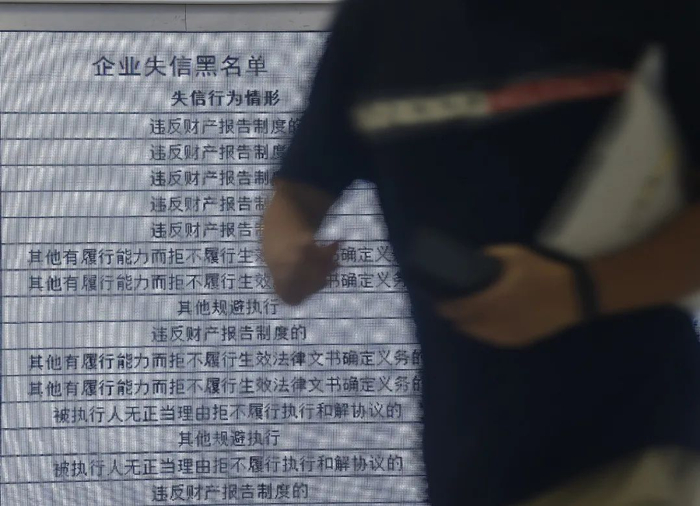 企业失信黑名单
失信行为情形
违反财产报告制度的
违反财产报告制度
违反财产报告制
违反财产报告制
违反财产报告制
其他有履行能力而拒不履行生效 书确定义
其他有履行能力而拒不履行生 书确定义务
其他规避执行
违反财产报告制度的
其他有履行能力而拒不履行生效法律文书确定义务的
其他有履行能力而拒不履行生效法律文书确定义务的
被执行人无正当理由拒不履行执行和解协议的
其他规避执行
被执行人无正当理由拒不履行执行和解协议的
违反财产报告制度的